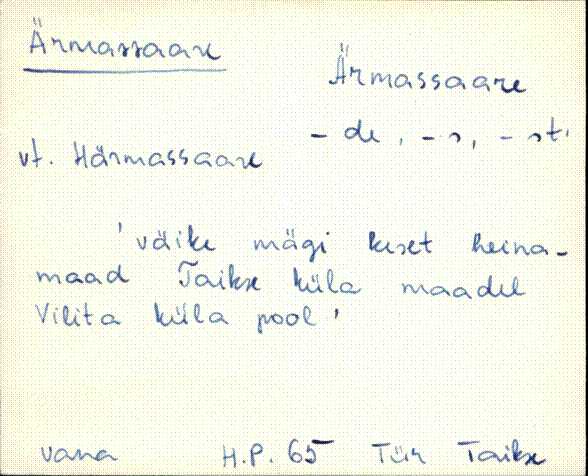 Ärmassaare
Ärmassaare
- de, - s, - st.
vt. Härmassaare
'väike mägi keset heina-
maad Taikse küla maadel
Vilita küla pool'
vana H.P. 65 Tür Taikse